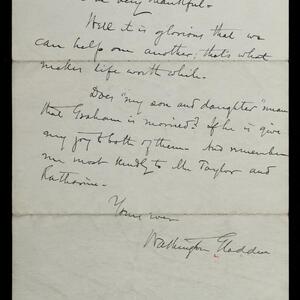 very thankful.
Well it is glorious that we
can help one another, that's what
makes life worth while.
Does "my son and daughter" mean
that Graham is married? If he is give
my joy to both of them. And remember
me most kindly to Mr Taylor and
Katharine.
Yours ever
Washington Gladden